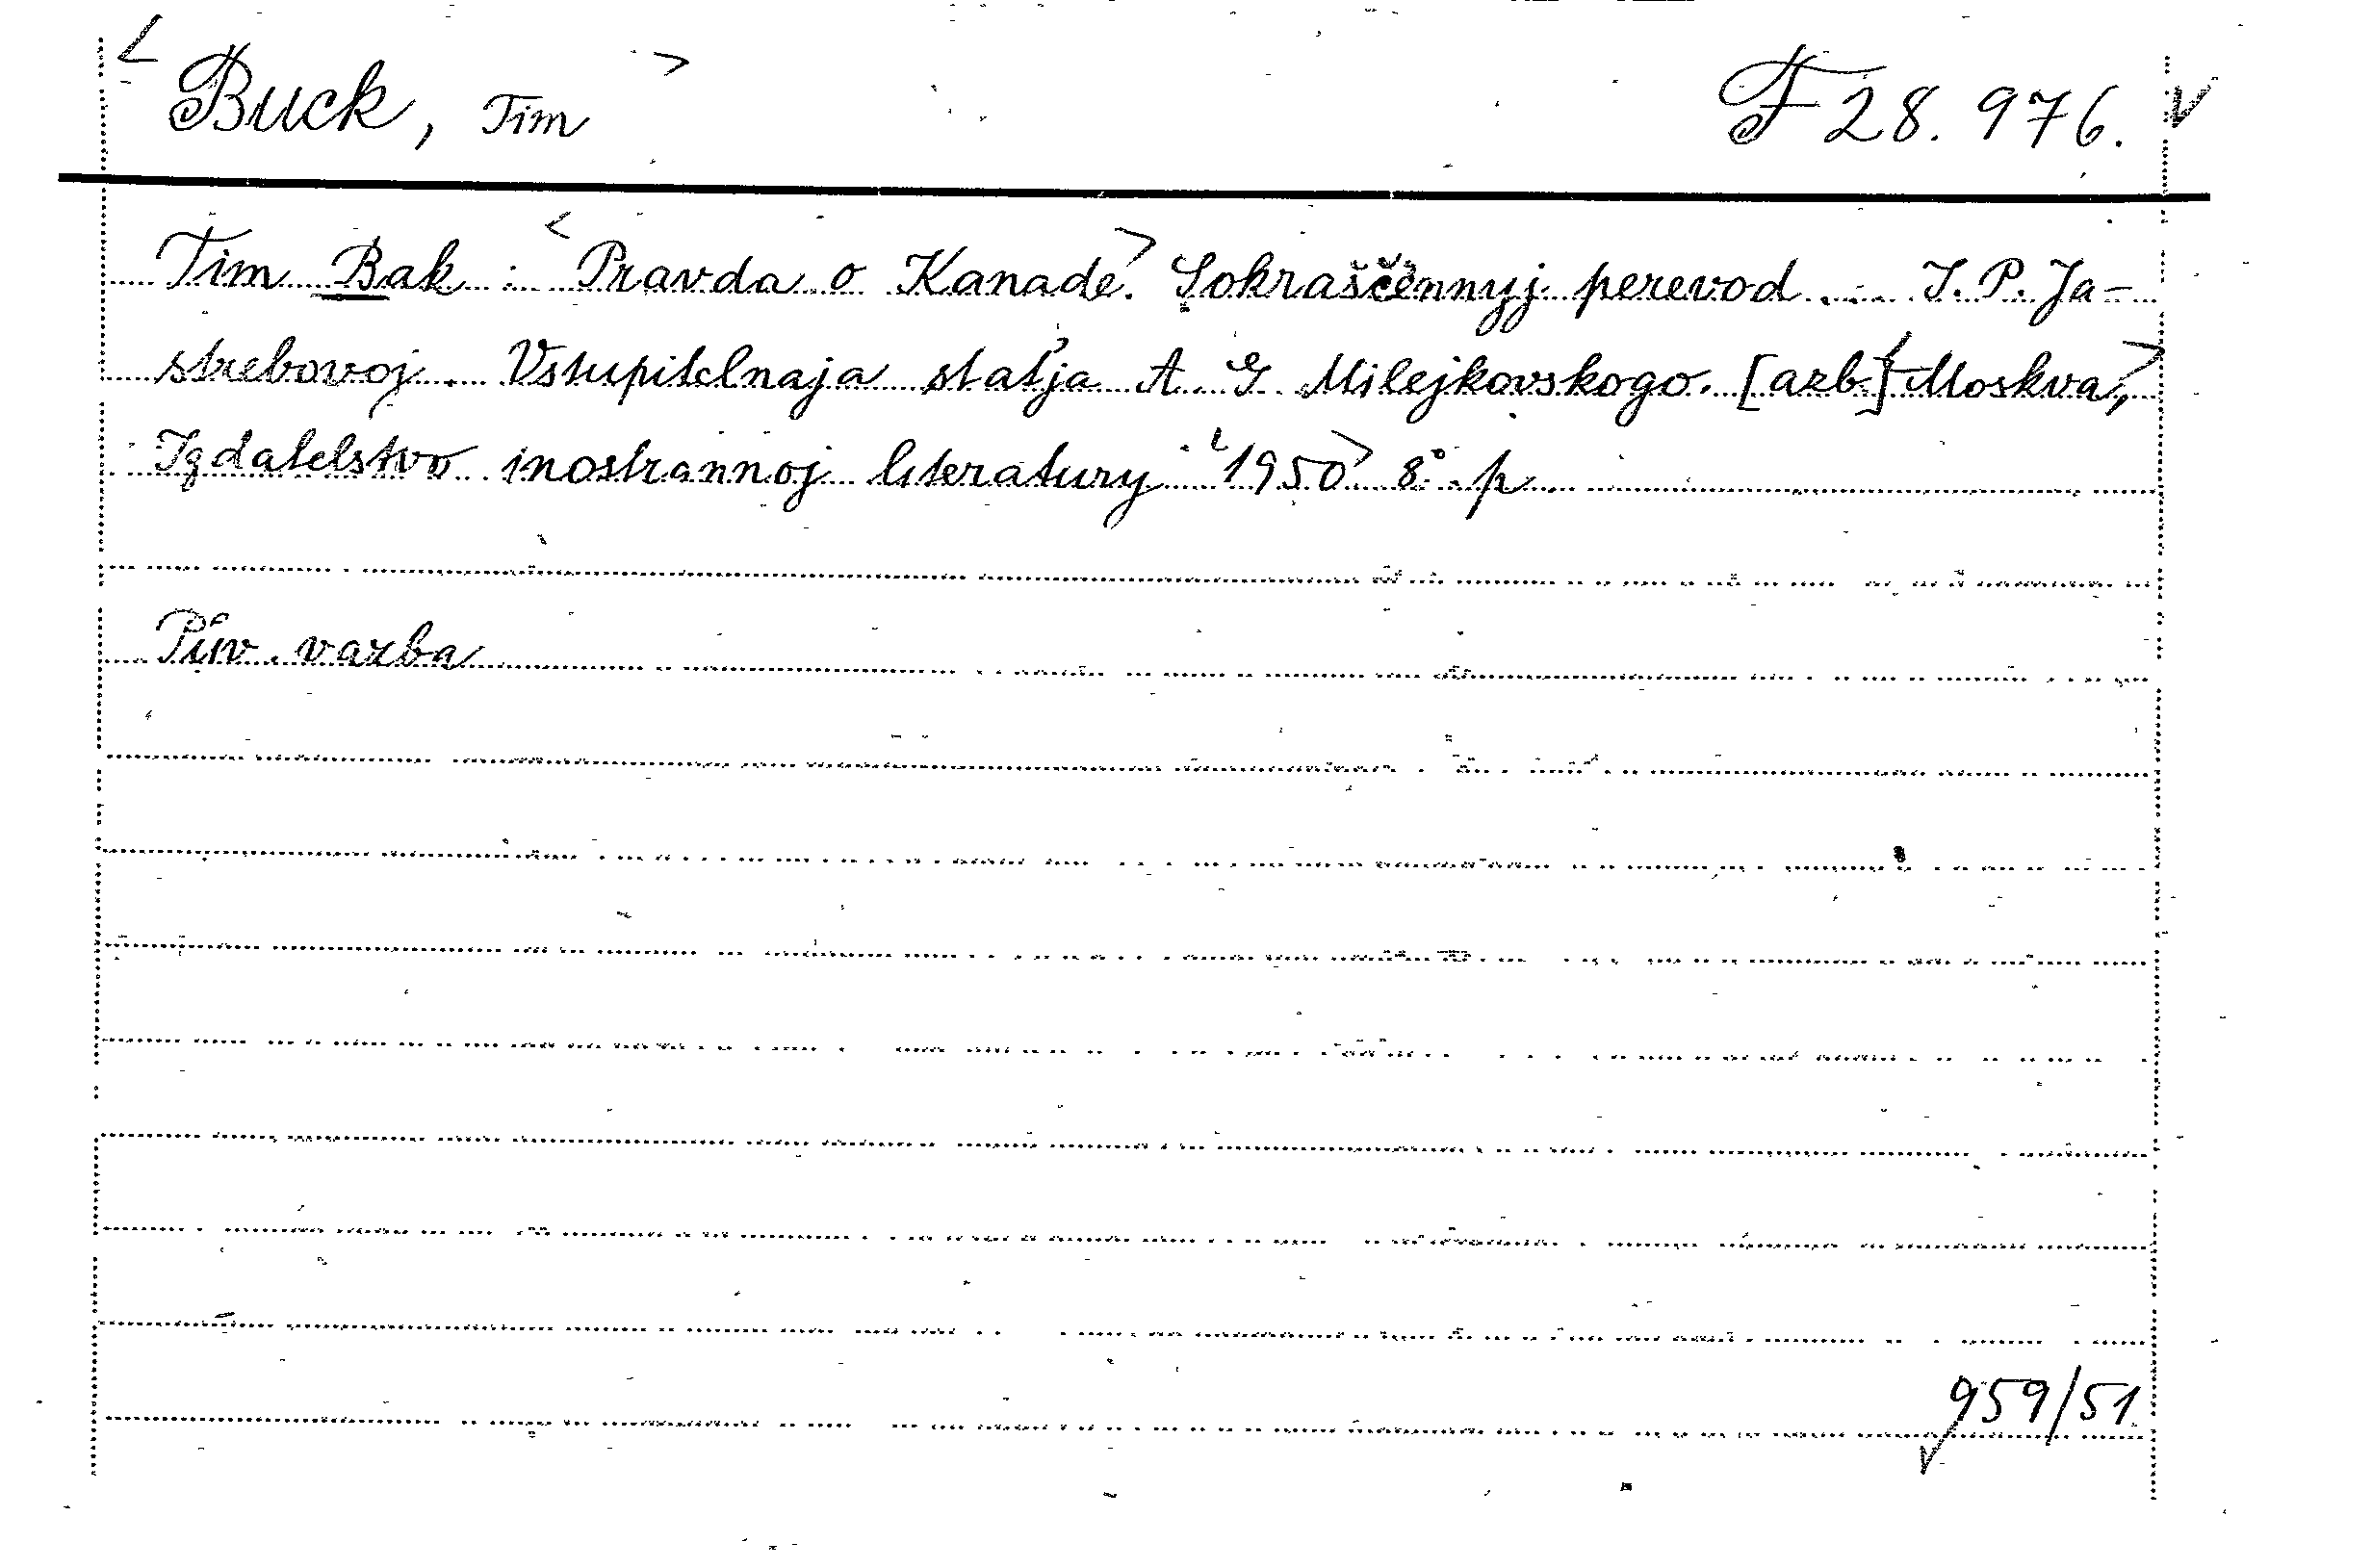 < Buck, Tim > F 28.976. v
Tim Bak : <Pravda o Kanadě.> Sokraščënnyj perevod ... I. P. Ja-
strebovoj. Vstupitelnaja statja A. G. Milejkovskogo. [azb.] <Moskva,>
Izdatelstvo inostrannoj literatury <1950> 8° p.
Pův. vazba
959/51